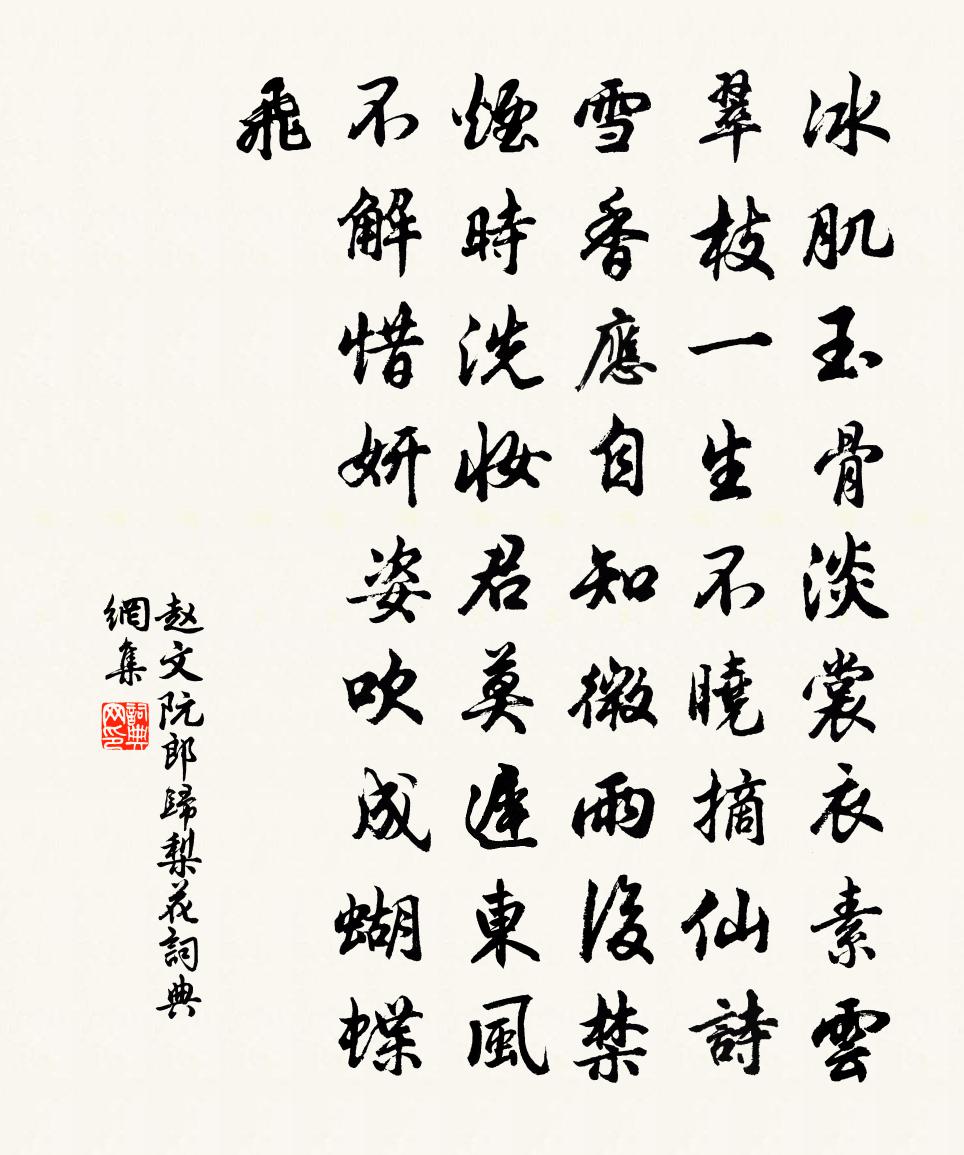 冰肌玉骨淡裳衣素雲
翠枝一生不曉摘仙詩
雪香應自知微雨後禁
煙時洗妆君莫遲東風
不解惜妍姿吹成蝴蝶
飛
赵文阮郎歸梨花詞典
網集
詞典
网印